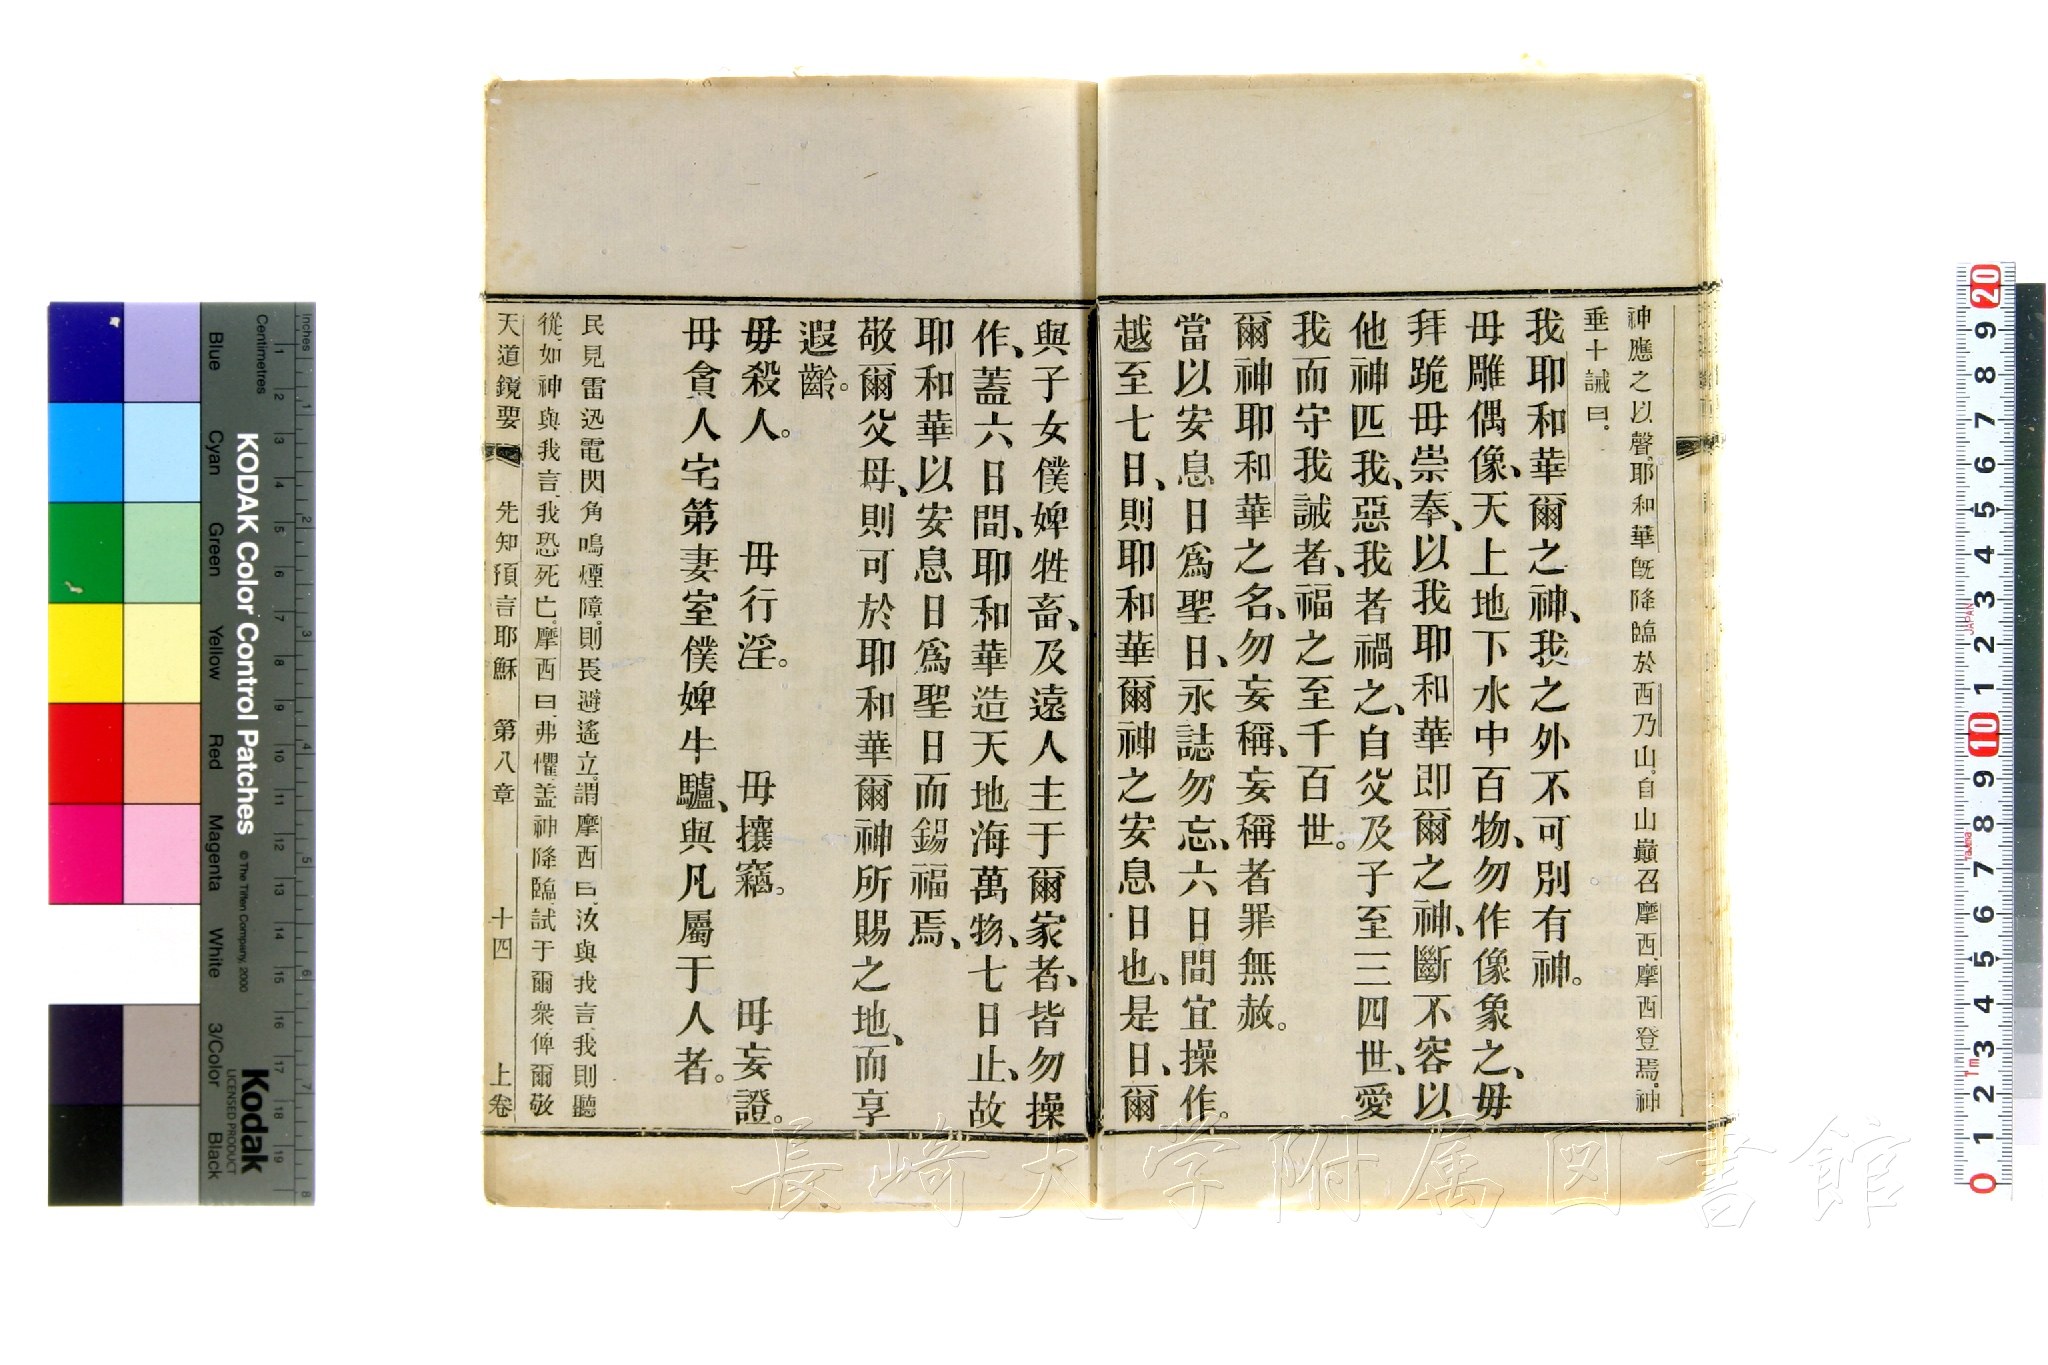 神應之以聲。耶和華旣降臨於西乃山。自山巔召摩西、摩西登焉。神
垂十誡曰。
我耶和華爾之神、我之外不可別有神。
毋雕偶像、天上地下水中百物、勿作像象之、毋
拜跪毋崇奉、以我耶和華卽爾之神、斷不容以
他神匹我、惡我者禍之、自父及子至三四世、愛
我而守我誡者、福之至千百世。
爾神耶和華之名、勿妄稱、妄稱者罪無赦。
當以安息日爲聖日、永誌勿忘、六日間宜操作。
越至七日、則耶和華爾神之安息日也、是日、爾
與子女僕婢牲畜、及遠人主于爾家者、皆勿操
作、蓋六日間、耶和華造天地海萬物、七日止、故
耶和華以安息日爲聖日而錫福焉、
敬爾父母、則可於耶和華爾神所賜之地、而享
遐齡。
毋殺人。 毋行淫。 毋攘竊。 毋妄證。
毋貪人宅第妻室僕婢牛驢、與凡屬于人者。
民見雷迅電閃角鳴煙障。則長避遙立。謂摩西曰、汝與我言、我則聽
從、如神與我言、我恐死亡。摩西曰、弗懼、盖神降臨、試于爾衆、俾爾敬
天道鏡要 先知預言耶穌 第八章 十四 上卷
KODAK Color Control Patches
© The Tiffen Company, 2000
Kodak
LICENSED PRODUCT
Inches
Centimetres
Blue Cyan Green Yellow Red Magenta White 3/Color Black
1 2 3 4 5 6 7 8 9 10 11 12 13 14 15 16 17 18 19
1 2 3 4 5 6 7 8
20 9 8 7 6 5 4 3 2 1 10 9 8 7 6 5 4 3 2 1 0
JAPAN
長崎大学附属図書館